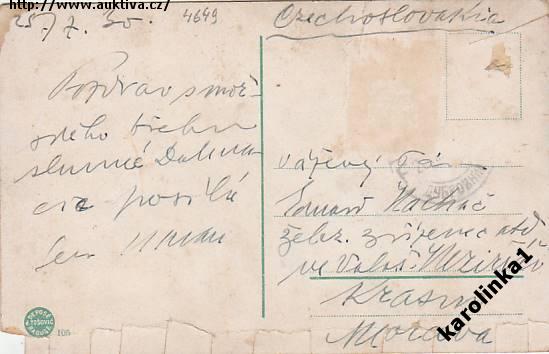 http://www.auktiva.cz/
25/7. 30.
4649
Czechoslovakia
Pozdrav s moř-
ského břehu
slunné Dalma-
cie posílá
Vážený Pán
Eduard
želez. zřízenec atd
ve Valaš. Meziříčí
Krásno
Morava
DEPOSÉ
TOŠOVIĆ
RAGUSE
105
karolinka1